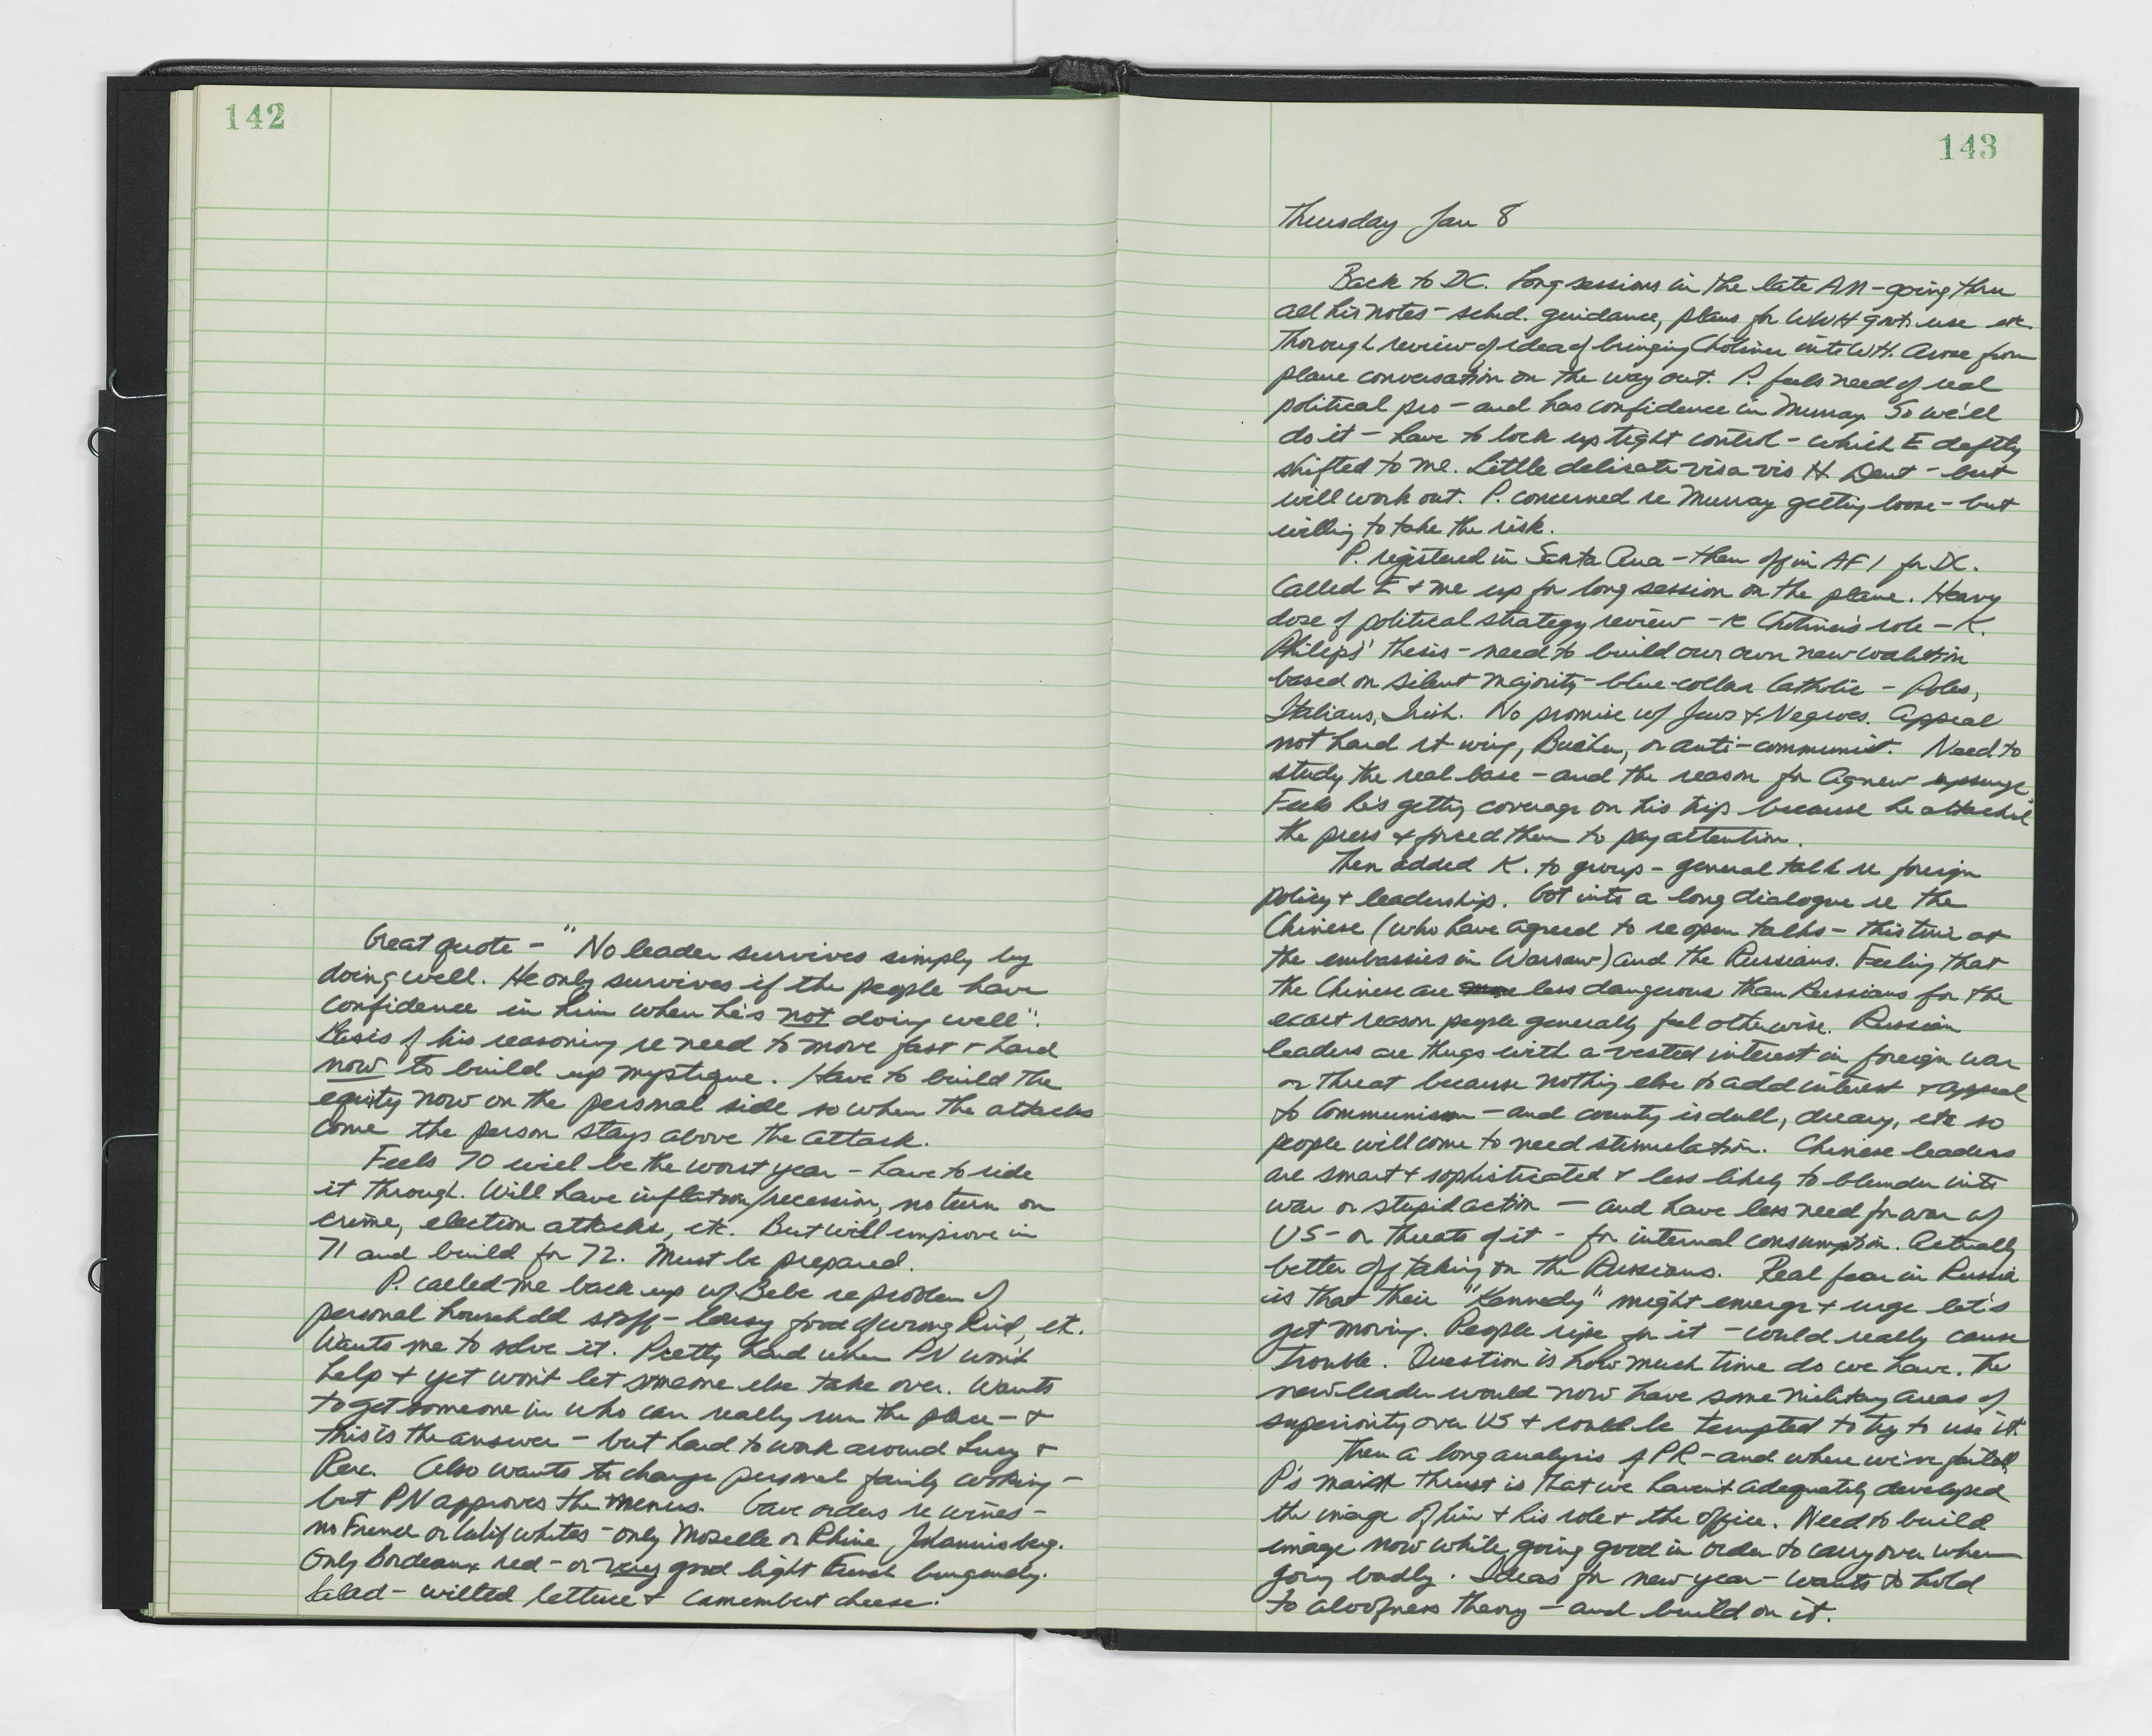 142
Great quote - "No leader survives simply by
doing well. He only survives if the people have
confidence in him when he's not doing well".
Basis of his reasoning re need to move fast + hard
now to build up mystique. Have to build the
equity now on the personal side so when the attacks
come the person stays above the attack.
Feels 70 will be the worst year - have to ride
it through. Will have inflation/recession, no turn on
crime, election attacks, etc. But will improve in
71 and build for 72. Must be prepared.
P. called me back up w/ Bebe re problem of
personal household staff - lousy food of wrong kind, etc.
Wants me to solve it. Pretty hard when PN won't
help + yet won't let someone else take over. Wants
to get someone in who can really run the place - +
this is the answer - but hard to work around Lucy +
Rex. Also wants to change personal family cooking -
but PN approves the menus. Gave orders re wines -
no French or Calif whites - only Moselle or Rhine, Johannisberg.
Only Bordeaux red - or very good light French burgundy.
Salad - wilted lettuce + camembert cheese.
143
Thursday Jan 8
Back to DC. Long sessions in the late AM - going thru
all his notes - sched. guidance, plans for WWH govt. use etc.
Thorough review of idea of bringing Chotiner into WH. Arose from
plane conversation on the way out. P. feels need of real
political pro - and has confidence in Murray. So we'll
do it - have to lock up tight control - which E deftly
shifted to me. Little delicate vis a vis H. Dent - but
will work out. P. concerned re Murray getting loose - but
willing to take the risk.
P. registered in Santa Ana - then off in AF 1 for DC.
Called E + me up for long session on the plane. Heavy
dose of political strategy review - re Chotiner's role - K.
Philips' thesis - need to build our own new coalition
based on silent majority - blue-collar Catholic - Poles,
Italians, Irish. No promise w/ Jews + Negroes. Appeal
not hard rt-wing, Bircher, or anti-communist. Need to
study the real base - and the reason for Agnew upsurge.
Feels he's getting coverage on his trip because he attacked
the press + forced them to pay attention.
Then added K. to group - general talk re foreign
policy + leadership. Got into a long dialogue re the
Chinese (who have agreed to reopen talks - this time at
the embassies in Warsaw) and the Russians. Feeling that
the Chinese are less dangerous than Russians for the
exact reason people generally feel otherwise. Russian
leaders are thugs with a vested interest in foreign war
or threat because nothing else to add interest + appeal
to Communism - and county is dull, dreary, etc so
people will come to need stimulation. Chinese leaders
are smart + sophisticated + less likely to blunder into
war or stupid action - and have less need for war w/
US - or threats of it - for internal consumption. Actually
better off taking on the Russians. Real fear in Russia
is that their "Kennedy" might emerge + urge let's
get moving. People ripe for it - would really cause
trouble. Question is how much time do we have. The
new leader would now have some military areas of
superiority over US + could be tempted to try to use it.
Then a long analysis of PR - and where we've failed.
P's main thrust is that we haven't adequately developed
the image of him + his role + the office. Need to build
image now while going good in order to carry over when
going badly. Ideas for new year - wants to hold
to aloofness theory - and build on it.